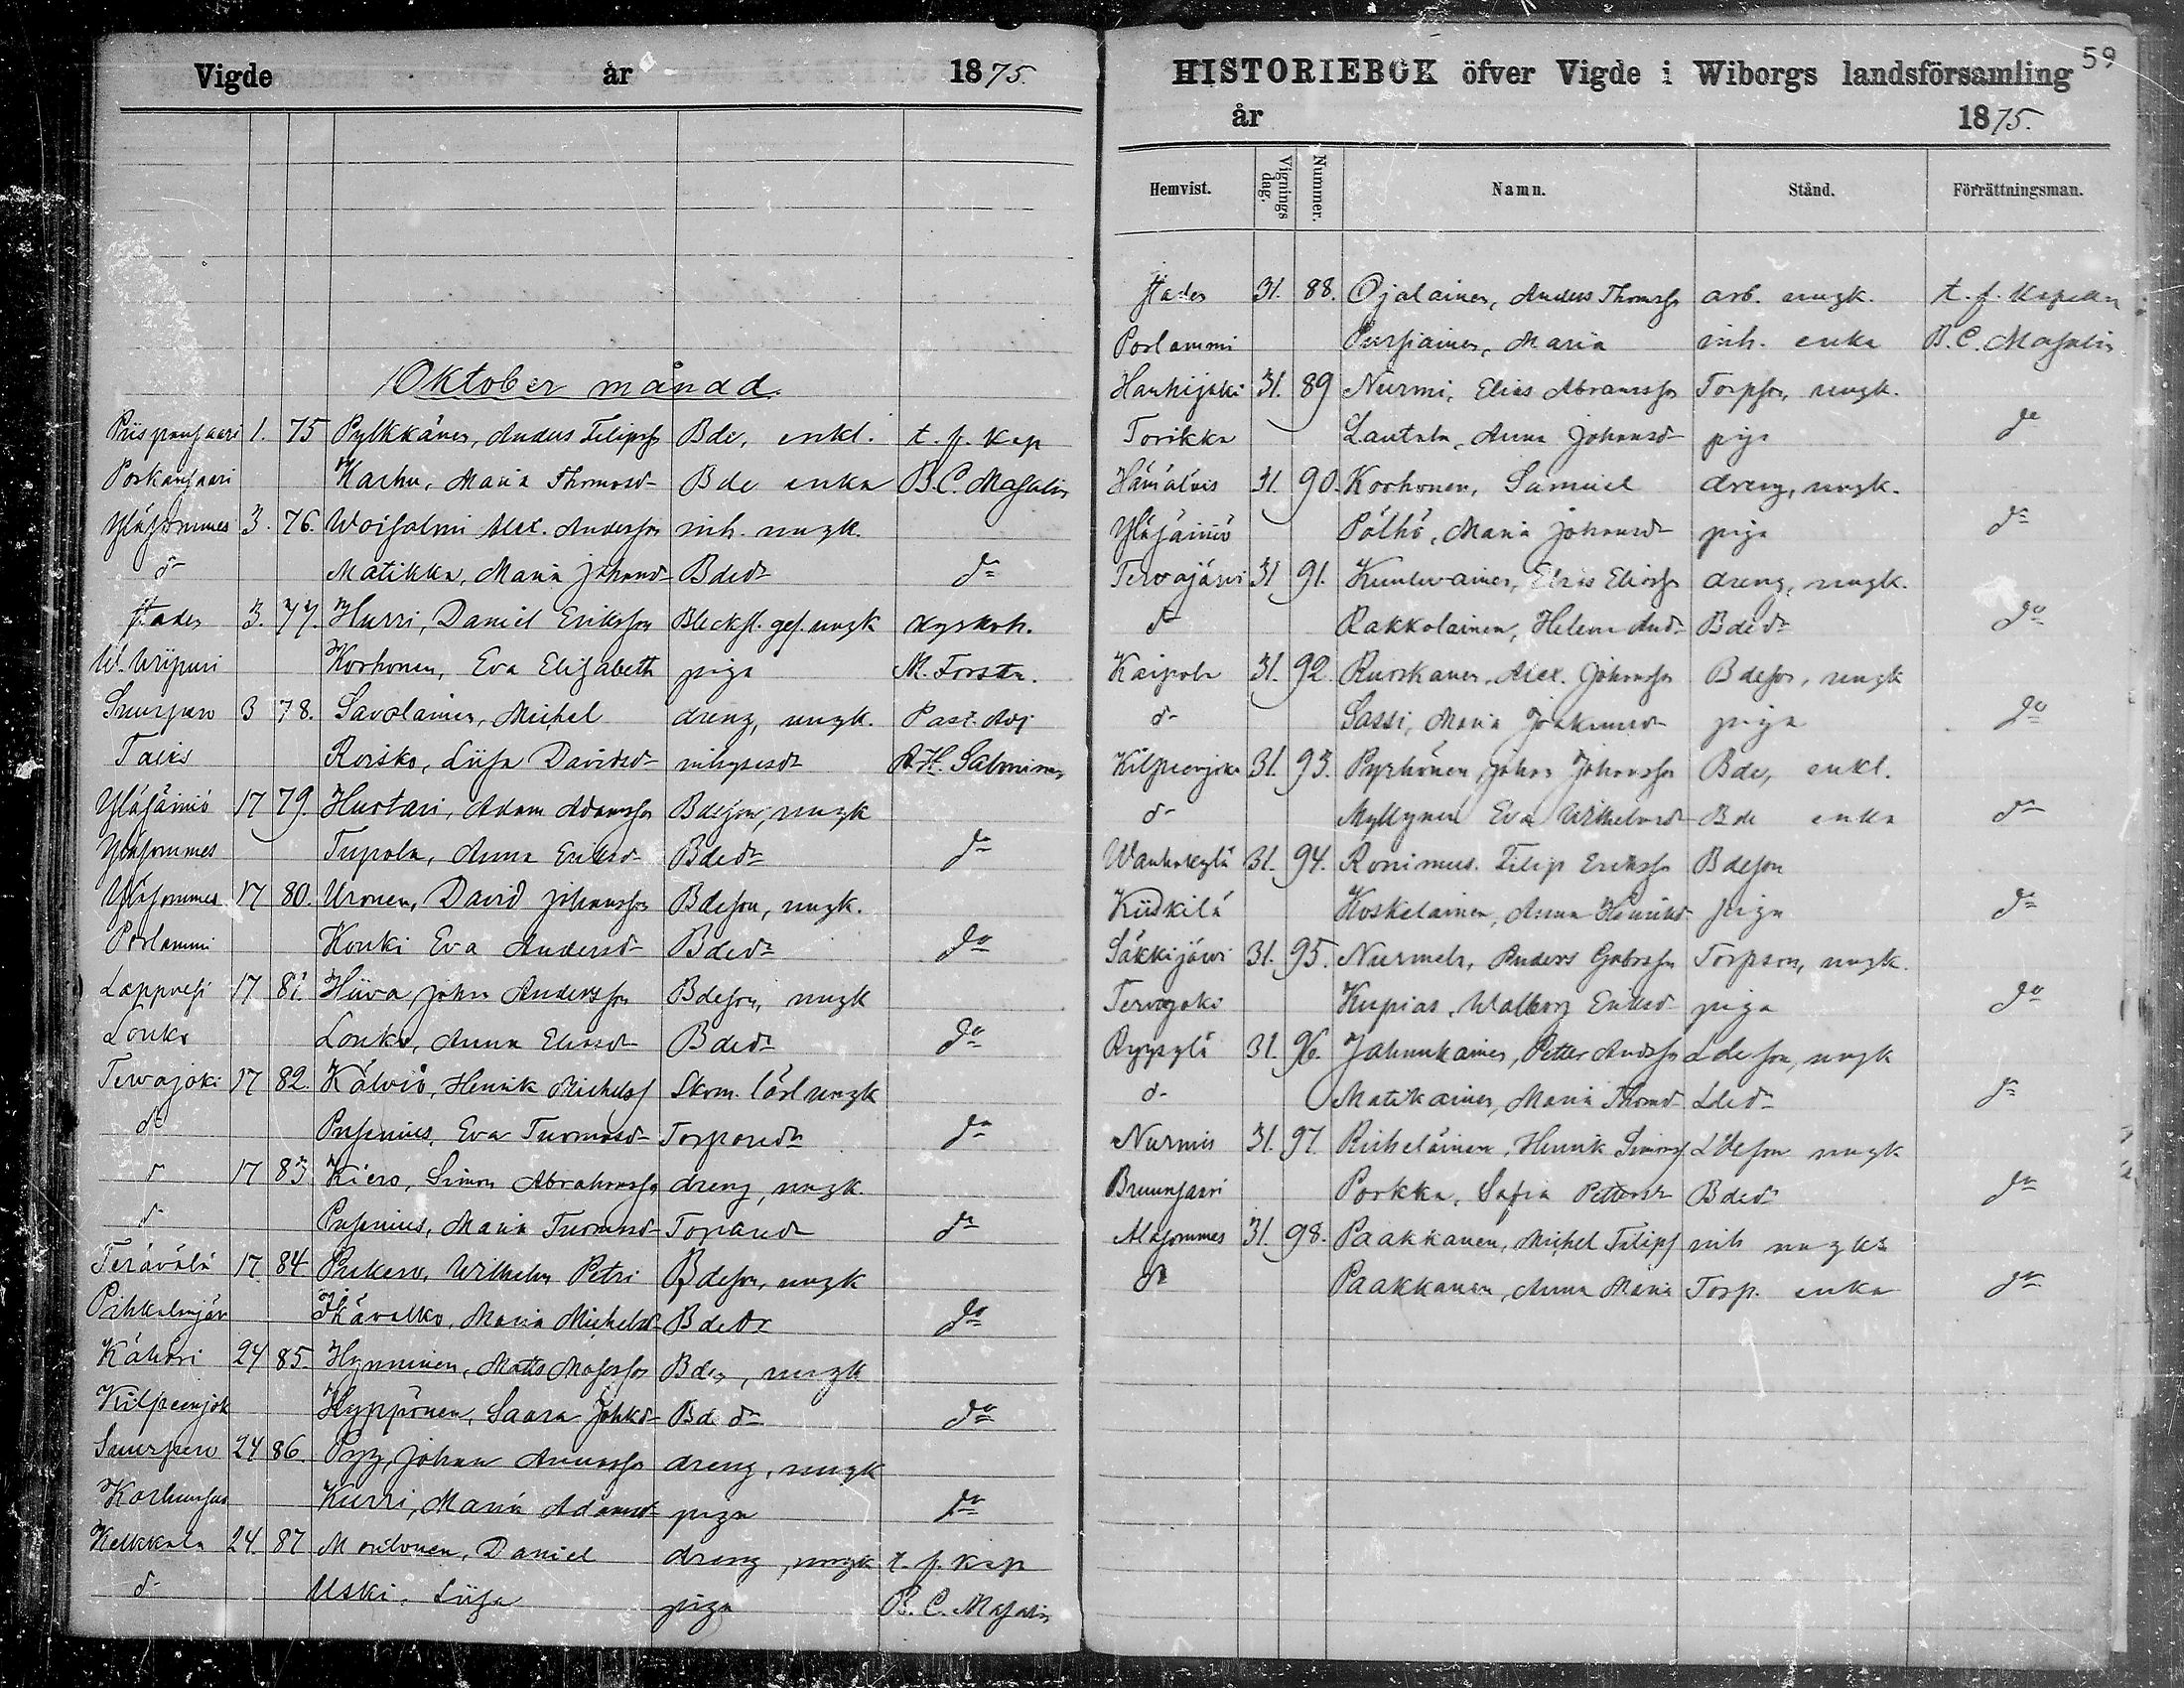 Vigde år 1875.
Oktober månad.
1. 75 Pylkkänen, Anders Filipss Bde, enkl. t. f. Kap
Porkansaari Karhu, Maria Thomasd Bde enka B. C. Masalin
Yläsommes 3. 76. Woisalmi Alex. Andersson inh. ungk.
do Matikka, Maria Johansd Bdedr do
stades 3. 77. Hurri, Daniel Eriksson Blecksl. ges. ungk
W. Wiipuri Korhonen, Eva Elisabeth piga M. Forstn.
Suurpero 3 78. Savolainen, Michel dreng, ungk. Past. Adj
Taiis Roisko, Liisa Davidsd A. H. Salminen
Yläsäiniö 17 79. Hurtari, Adam Adamsson Bdeson, ungk
Yläsommes Tupola, Anna Eriksd Bdedr do
Yläsommes 17 80. Uronen, David Johansson Bdeson, ungk.
Porlammi Konki Eva Andersd Bdedr do
Lappvesi 17 81. Hiiva Johan Andersson Bdeson, ungk
Louko Louko, Anna Eliasd Bdedr do
Tervajoki 17 82. Kälviö, Henrik Michelss Skom. lärl ungk
do Pusenius, Eva Tuomasd Torparedr do
do 17 83 Kiero, Simon Abrahamsson dreng, ungk.
do Pusenius, Maria Tuomasd Toparedr do
Terävälä 17. 84 Pukero, Wilhelm Petri Bdeson, ungk
Pihkalanjär Kävelko, Maria Michelsd Bdedr do
Kähäri 24 85 Hynninen, Matts Matsson Bde, ungk
Kilpeenjok Hyppönen, Saara Johsd Bdedr do
Suurpero 24 86. Pyy, Johan dreng, ungk
Karhusuo Kurri, Maria Adamsd piga do
Kelkkala 24. 87 Morilonen, Daniel dreng, ungk t. f. Kap
do Uski, Liisa piga B. C. Masalin
59
HISTORIEBOK öfver Vigde i Wiborgs landsförsamling
år 1875.
Hemvist. Vignings dag. Nummer. Namn. Stånd. Förrättningsman.
stades 31. 88. Ojalainen, Anders Thomass arb. ungk. t. f. Kapellan
Porlammi Pursiainen, Maria inh. enka B. C. Masalin
Hanhijoki 31. 89 Nurmi, Elias Abramsson Torpson, ungk.
Torikka Lautala, Anna Johansd piga do
Hämäläis 31. 90. Korhonen, Samuel dreng, ungk.
Yläsäiniö Pölhö, Maria Johansd piga do
Tervajärvi 31 91. Kuulvainen, Elias Eliasson dreng, ungk.
do Rakkolainen, Helena And. Bdedr do
Kaipola 31. 92. Ruoskanen, Alex. Johansson Bdeson, ungk
do Sassi, Maria piga do
Kilpeenjoki 31. 93. Pyrhönen, Johan Johansson Bde, enkl.
do Myllynen Eva Wilhelmsd Bde enka do
Wanhakylä 31. 94. Ronimus. Filip Eriksson Bdeson
Kiiskilä Koskelainen, Anna Henriksd piga do
Säkkijärvi 31. 95. Nurmela, Anders Gabrsson Torpson, ungk.
Tervajoki Kupias, Walborg Eriksd piga do
31. 96. Jahnukainen, Petter Andsson Ldeson, ungk
do Matikainen, Maria Thomsd Ldedr do
Nurmis 31. 97. Riiheläinen, Henrik Simonss Ldeson ungk
Porkka, Sofia Pettersd Bdedr do
Alasommes 31. 98. Paakkanen, Michel Filips inh ungk
do Paakkanen, Anna Maria Torp. enka do